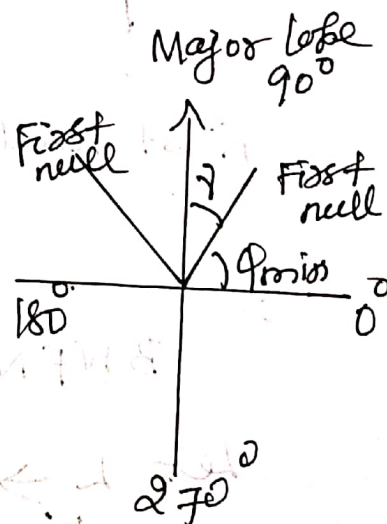 Major lobe
90°
First
null
γ
First
null
φmin
180°
0°
270°